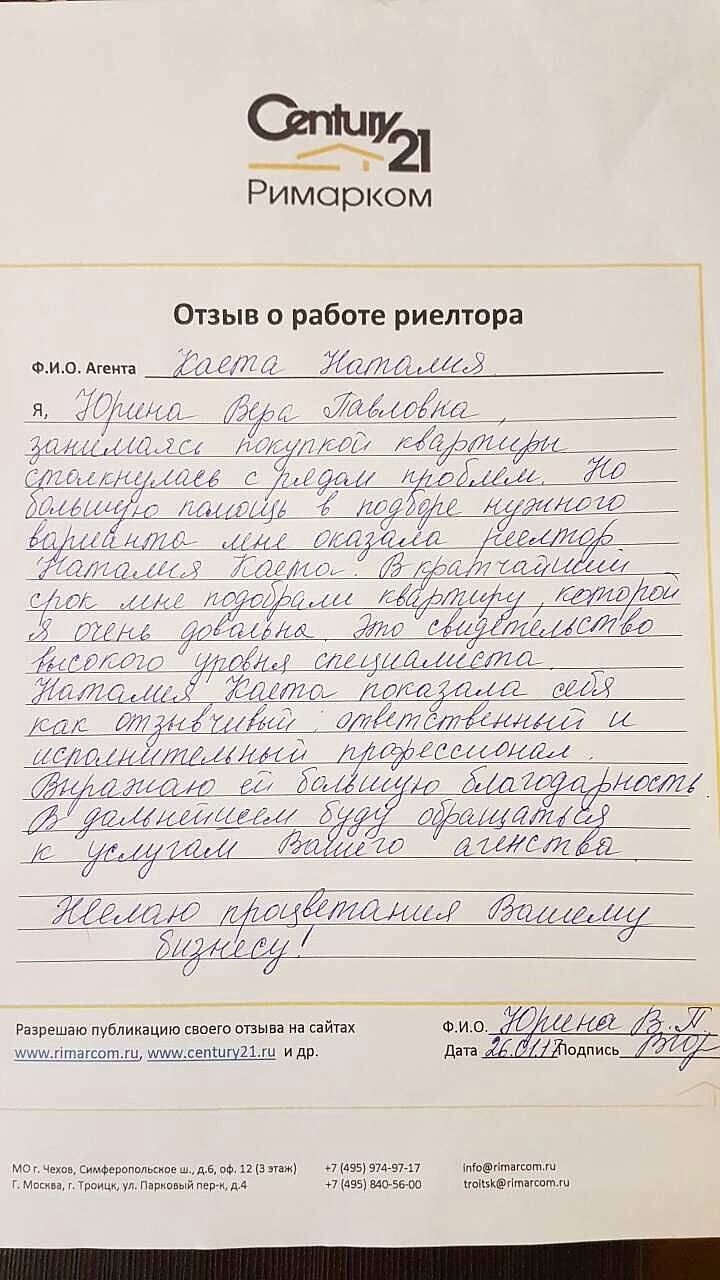 Century 21
Римарком
Отзыв о работе риелтора
Ф.И.О. Агента Каета Наталия
Я, Юрина Вера Павловна,
занимаясь покупкой квартиры
столкнулась с рядом проблем. Но
большую помощь в подборе нужного
варианта мне оказала риелтор
Наталия Каета. В кратчайший
срок мне подобрали квартиру, которой
я очень довольна. Это свидетельство
высокого уровня специалиста.
Наталия Каета показала себя
как отзывчивый, ответственный и
исполнительный профессионал.
Выражаю ей большую благодарность.
В дальнейшем буду обращаться
к услугам Вашего агенства.
Желаю процветания Вашему
бизнесу!
Разрешаю публикацию своего отзыва на сайтах Ф.И.О. Юрина В.П.
www.rimarcom.ru, www.century21.ru и др. Дата 26.01.17 Подпись
МО г. Чехов, Симферопольское ш., д.6, оф. 12 (3 этаж) +7 (495) 974-97-17 info@rimarcom.ru
Г. Москва, г. Троицк, ул. Парковый пер-к, д.4 +7 (495) 840-56-00 troitsk@rimarcom.ru